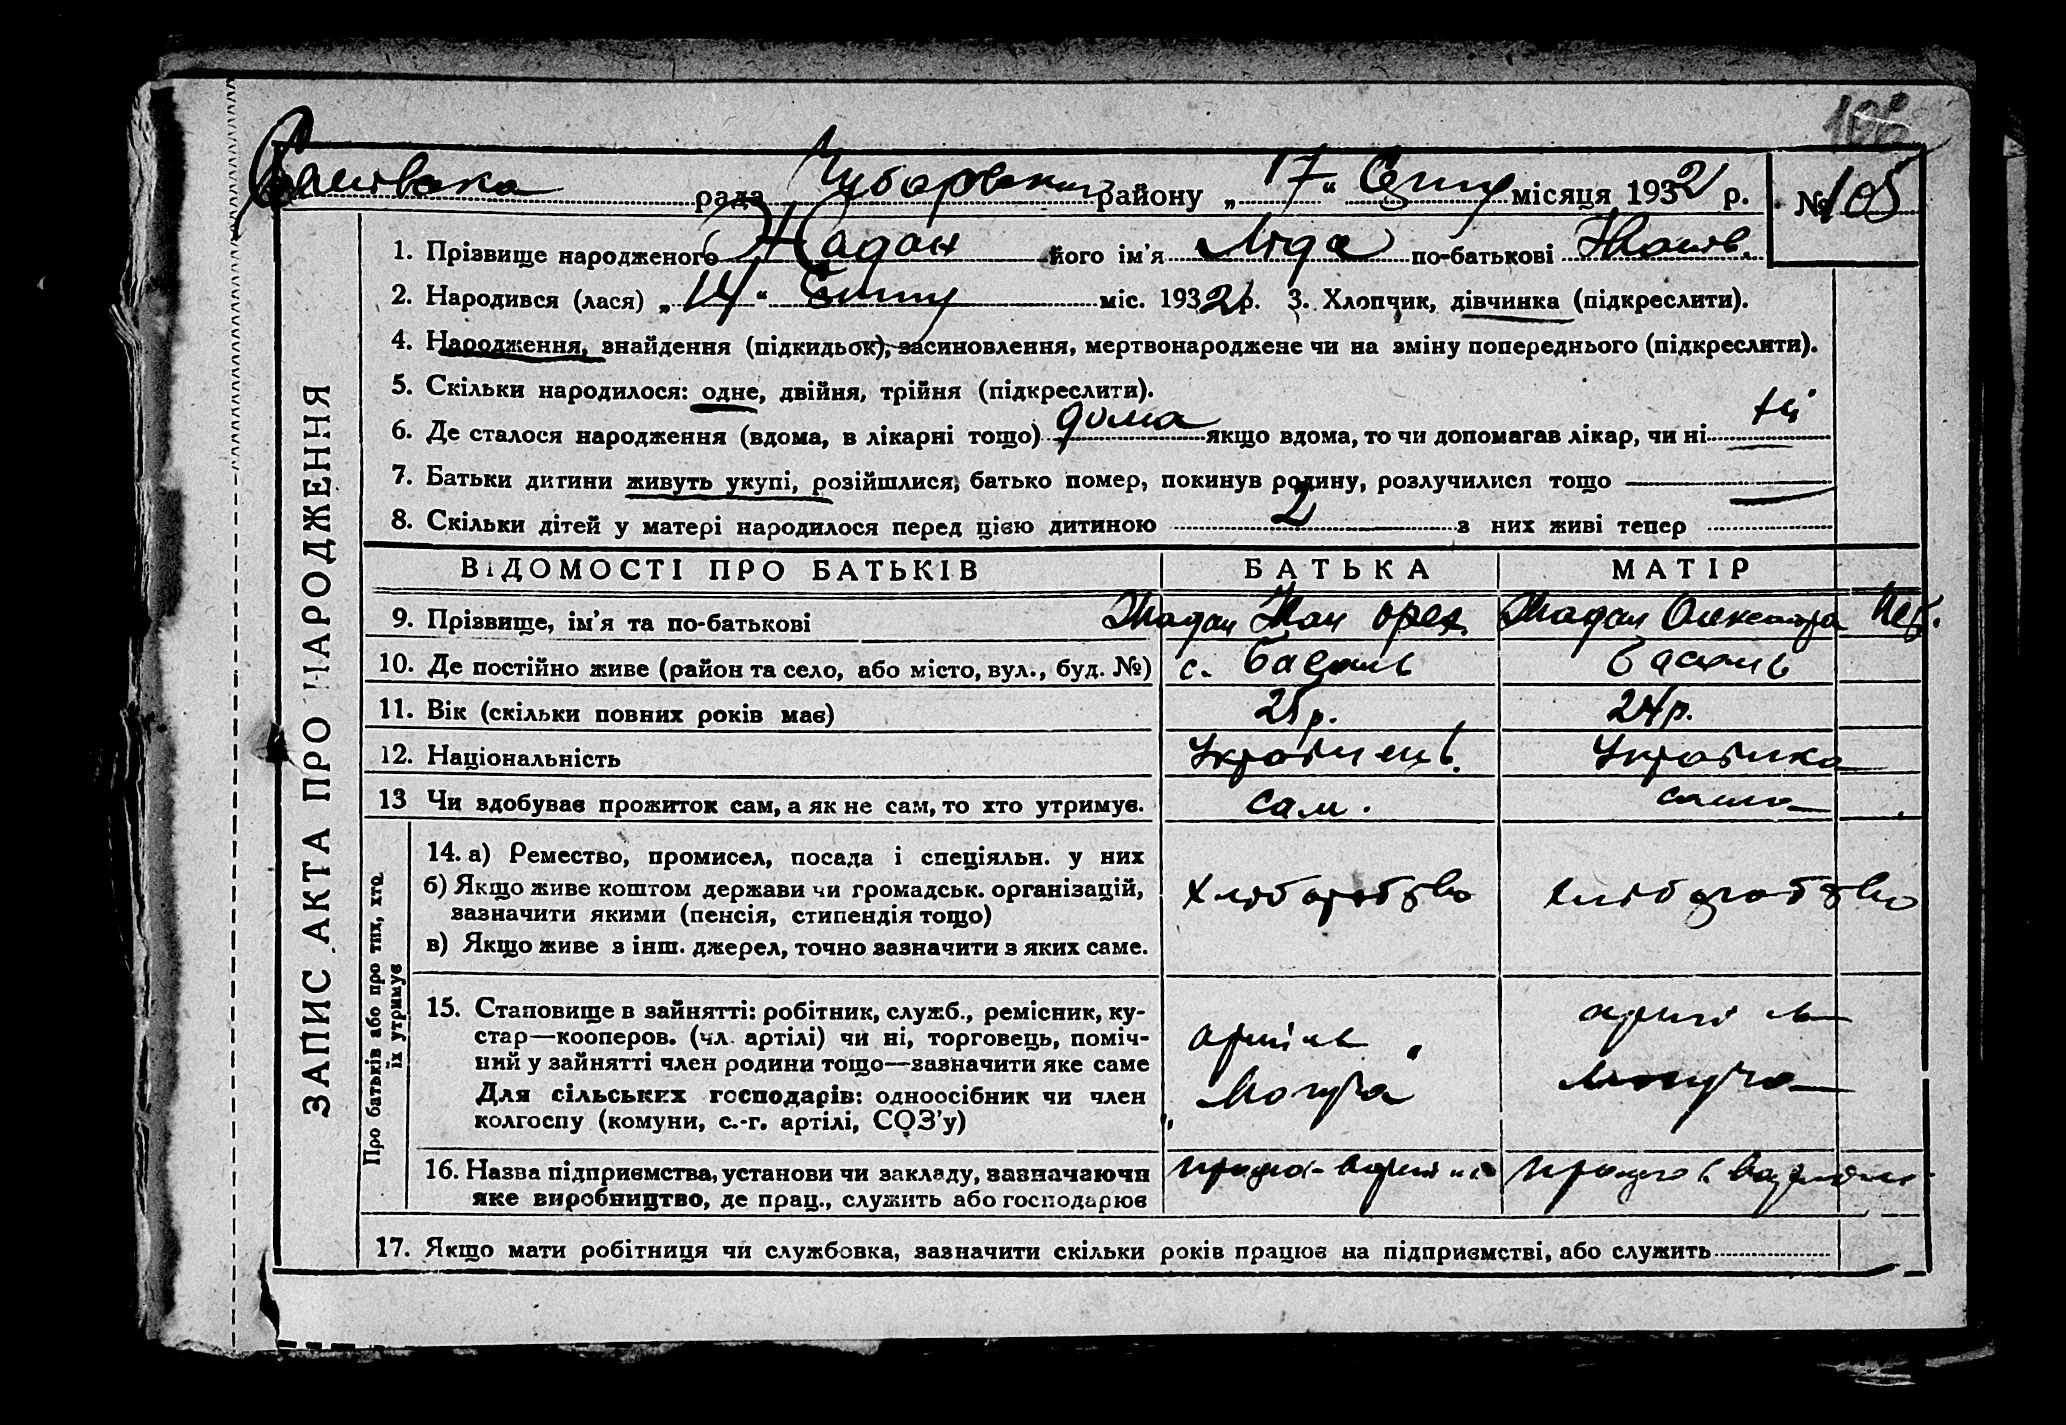 106
рада Чубарівськ району „ 17 “ Січня місяця 1932 р. № 105
1. Прізвище народженого Жадан його ім'я Ліда по-батькові
2. Народився (лася) „ 14 “ Січня міс. 1932 р. 3. Хлопчик, дівчинка (підкреслити).
4. Народження, знайдення (підкидьок), засиновлення, мертвонароджене чи на зміну попереднього (підкреслити).
5. Скільки народилося: одне, двійня, трійня (підкреслити).
6. Де сталося народження (вдома, в лікарні тощо) дома якщо вдома, то чи допомагав лікар, чи ні ні
7. Батьки дитини живуть укупі, розійшлися, батько помер, покинув родину, розлучилися тощо
8. Скільки дітей у матері народилося перед цією дитиною 2 з них живі тепер
ВІДОМОСТІ ПРО БАТЬКІВ БАТЬКА МАТІР
9. Прізвище, ім'я та по-батькові Жадан Іван Жадан Олександра
10. Де постійно живе (район та село, або місто, вул., буд. №) с. Басань Басань
11. Вік (скільки повних років має) 25р. 24р.
12. Національність Українець Українка
13 Чи здобуває прожиток сам, а як не сам, то хто утримує. сам. сама
ЗАПИС АКТА ПРО НАРОДЖЕННЯ
Про батьків або про тих, хто
їх утримує
14. а) Ремество, промисел, посада і спеціяльн. у них
б) Якщо живе коштом держави чи громадськ. організацій, хліборобство хліборобство
зазначити якими (пенсія, стипендія тощо)
в) Якщо живе з інш. джерел, точно зазначити з яких саме.
15. Становище в зайнятті: робітник, служб., ремісник, ку-
стар—кооперов. (чл. артілі) чи ні, торговець, поміч-
ний у зайнятті член родини тощо—зазначити яке саме
Для сільських господарів: одноосібник чи член
колгоспу (комуни, с.-г. артілі, СОЗ'у)
16. Назва підприємства, установи чи закладу, зазначаючи
яке виробництво, де прац., служить або господарює
17. Якщо мати робітниця чи службовка, зазначити скільки років працює на підприємстві, або служить